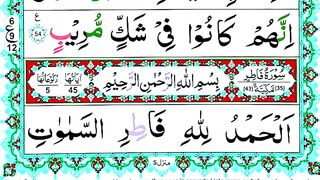 اِنَّهُمْ كَانُوْا فِيْ شَكٍّ مُّرِيْبٍ
سُوْرَةُ فَاطِرٍ مَكِّيَّةٌ (35) (43) بِسْمِ اللّٰهِ الرَّحْمٰنِ الرَّحِيْمِ اٰيَاتُهَا 45 رُكُوْعَاتُهَا 5
اَلْحَمْدُ لِلّٰهِ فَاطِرِ السَّمٰوٰتِ
منزل ۵
ع
54
6
9
12